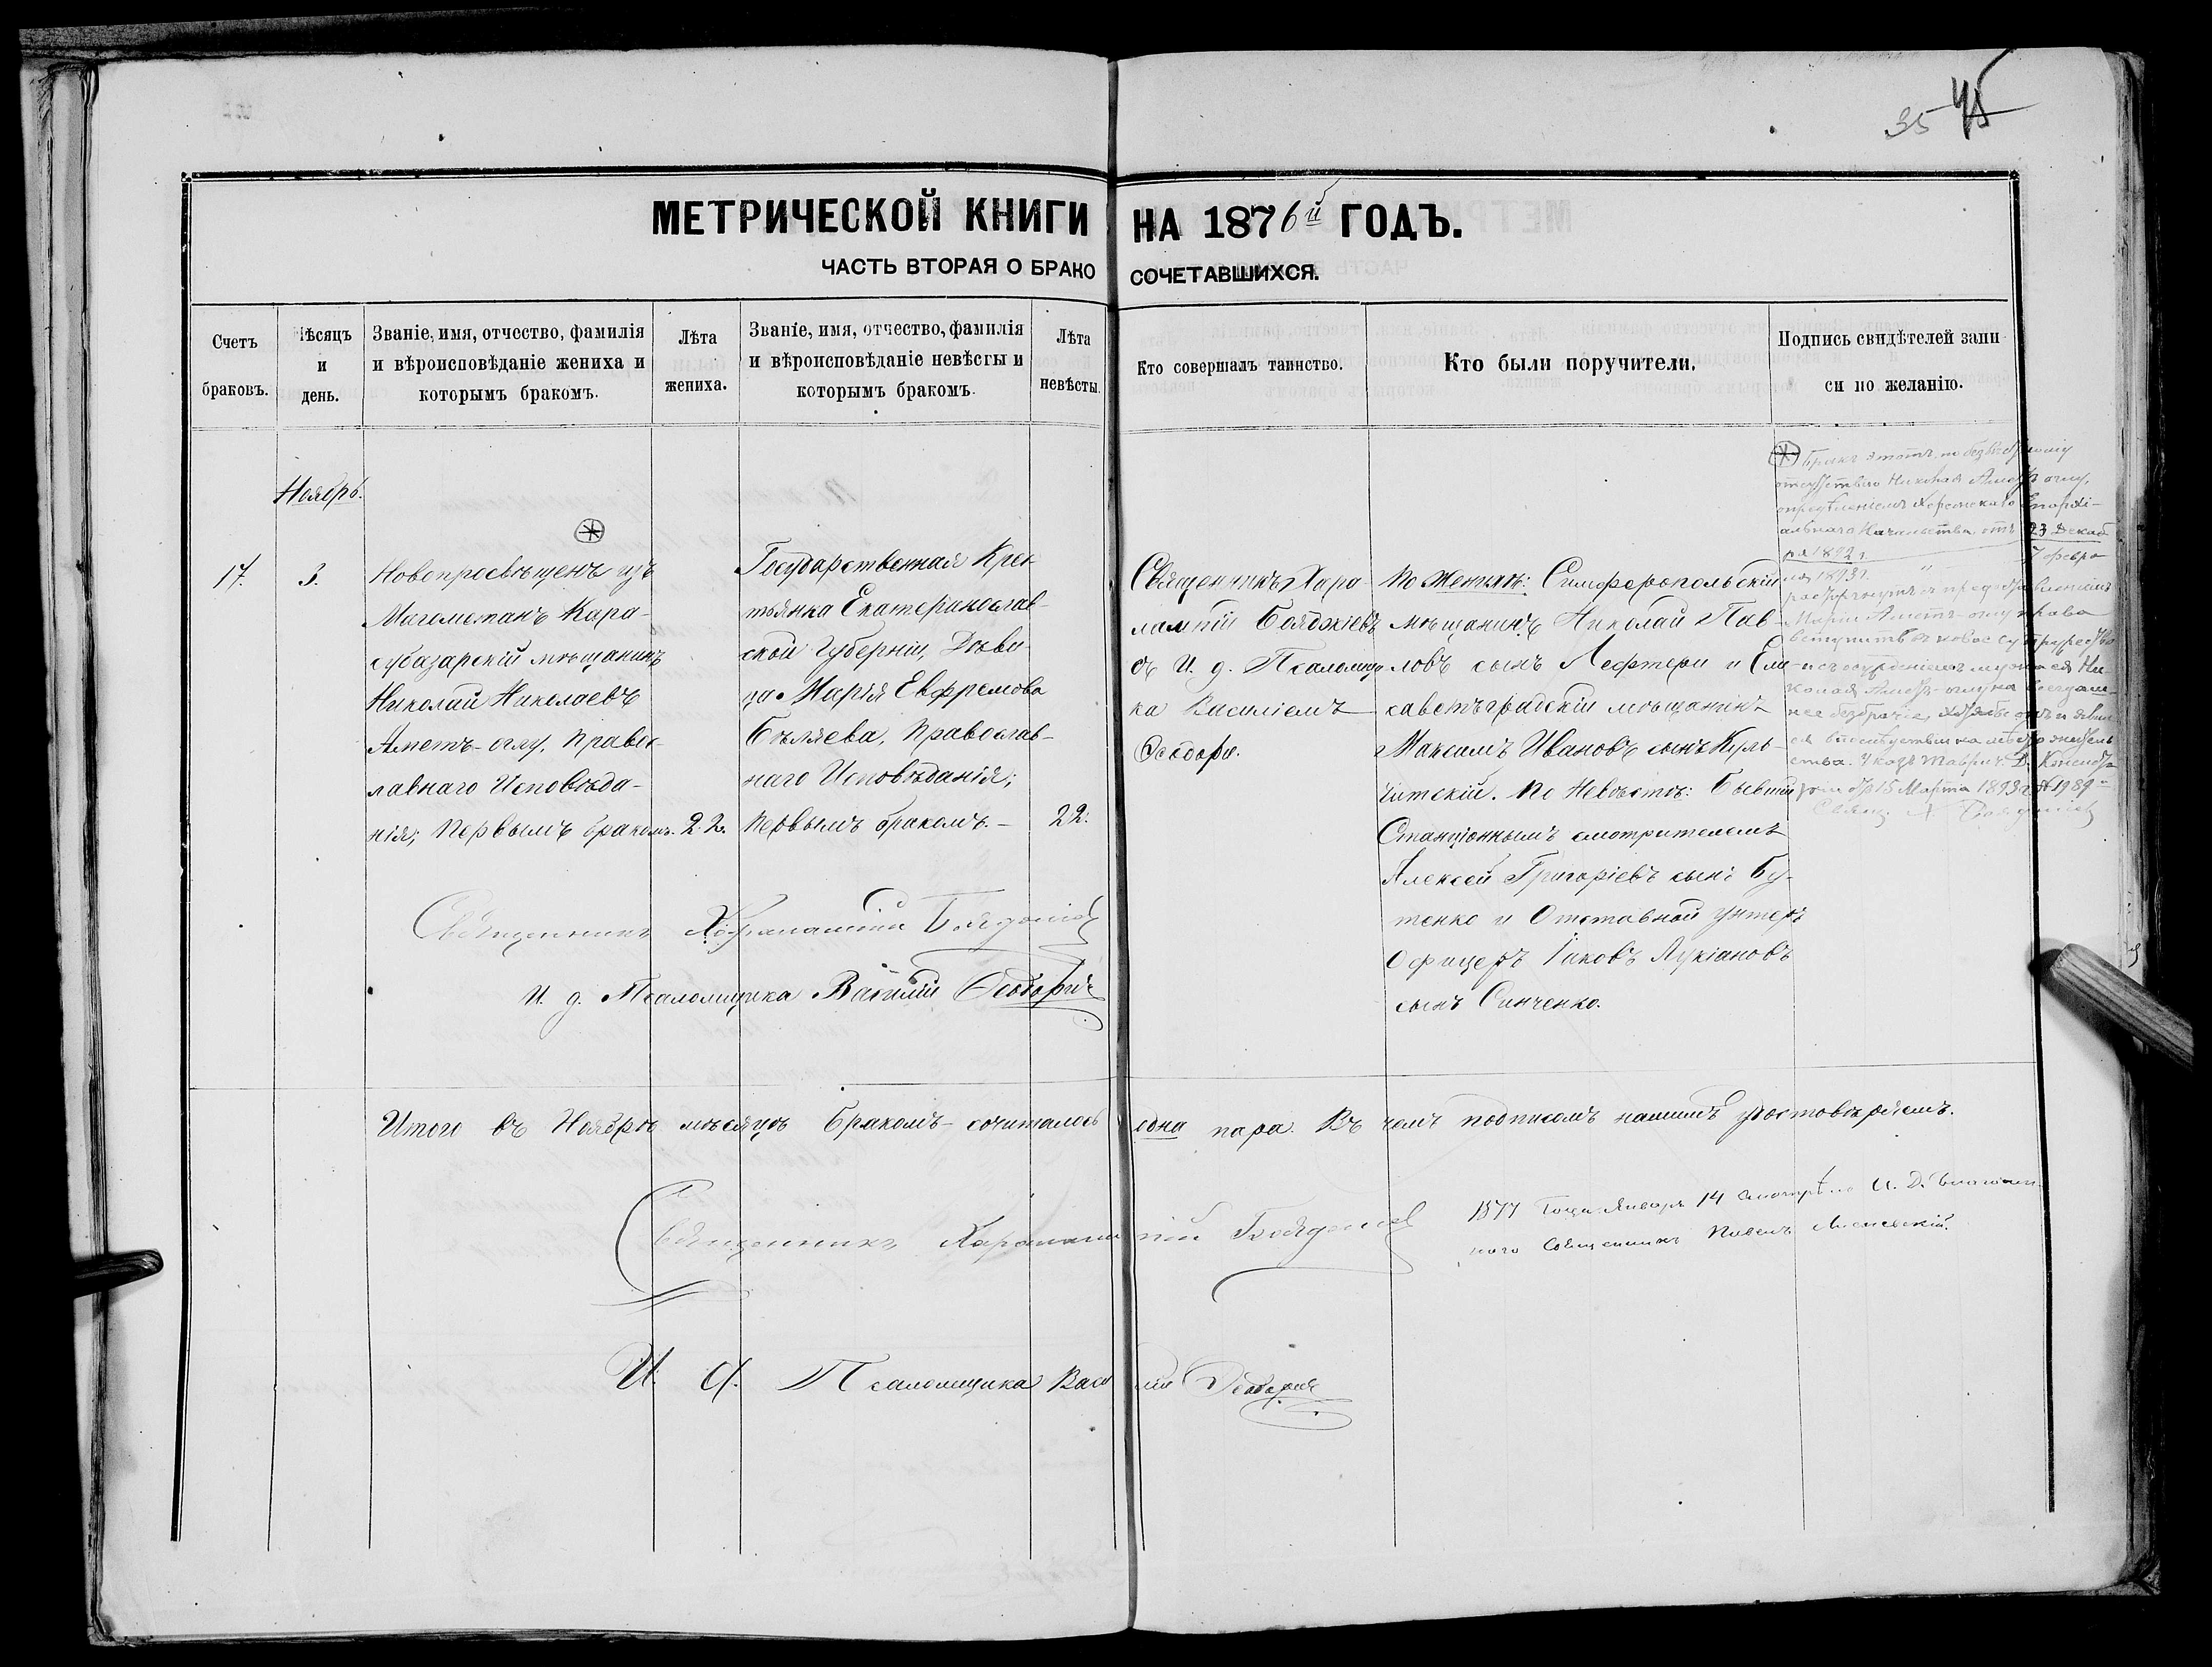 35 45
МЕТРИЧЕСКОЙ КНИГИ НА 1876й ГОДЪ.
ЧАСТЬ ВТОРАЯ О БРАКОСОЧЕТАВШИХСЯ.
Счетъ
браковъ.
Мѣсяцъ
и
день.
Званіе, имя, отчество, фамилія
и вѣроисповѣданіе жениха и
которымъ бракомъ.
Лѣта
жениха.
Званіе, имя, отчество, фамилія
и вѣроисповѣданіе невѣсты и
которымъ бракомъ.
Лѣта
невѣсты.
Кто совершалъ таинство.
Кто были поручители.
Подпись свидѣтелей запи
си по желанію.
Ноябрь.
17.
3.
Новопросвѣщенъ изъ
Магометанъ Кара-
субазарскій мѣщанинъ
Николай Николаевъ
Аметъ-оглу, Правос-
лавнаго Исповѣда-
нія; Первымъ бракомъ.
22.
Государственная Крес-
тьянка Екатеринослав-
ской Губерніи, Дѣви-
ца Марія Евфремова
Бѣляева, Православ-
наго Исповѣданія;
Первымъ бракомъ.-
22.
Священникъ Хара-
лампій Бояджіевъ
съ И. д. Псаломщи-
ка Василіемъ
Ѳеодори.
По Женихѣ: Симферопольскій
мѣщанинъ Николай Пав-
ловъ сынъ Лефтери и Ели-
саветъградскій мѣщанинъ
Максимъ Ивановъ сынъ Куль-
читскій. По Невѣстѣ: Бывшій
Станціоннымъ смотрителемъ
Алексѣй Григоріевъ сынъ Бу-
тенко и Отставной унтеръ
Офицеръ Іаковъ Лукіановъ
сынъ Синченко.
Бракъ этотъ, по безвѣстному
отсутствію Николая Аметъ-оглу,
опредѣленіемъ Херсонскаго Епархі-
альнаго Начальства отъ 23 Декаб
ря 1892 г. 7 февра
ля 1893 г.
расторгнутъ съ предоставленіемъ
Маріи Аметъ-оглу права
вступить въ новое супружество
и съ осужденіемъ мужа ея Ни
колая Аметъ-оглу на всегдаш-
нее безбрачіе, хотя бы онъ и явил-
ся впослѣдствіи на мѣсто житель
ства. Указъ Таврич. Д. Консисто
ріи отъ 15 Марта 1893 г. № 1989
Свящ. Х. Бояджіевъ
Священникъ Харалампій Бояджіевъ
И. д. Псаломщика Василій Ѳеодори
Итого въ Ноябрѣ мѣсяцѣ бракомъ-сочиталось одна пара. Въ чемъ подписомъ нашимъ удостовѣряемъ.
Священникъ Харалампій Бояджіевъ
1877 Года Января 14 смотрѣлъ И. Д. Благочин-
наго Священникъ Павелъ
И. д. Псаломщика Василій Ѳеодори